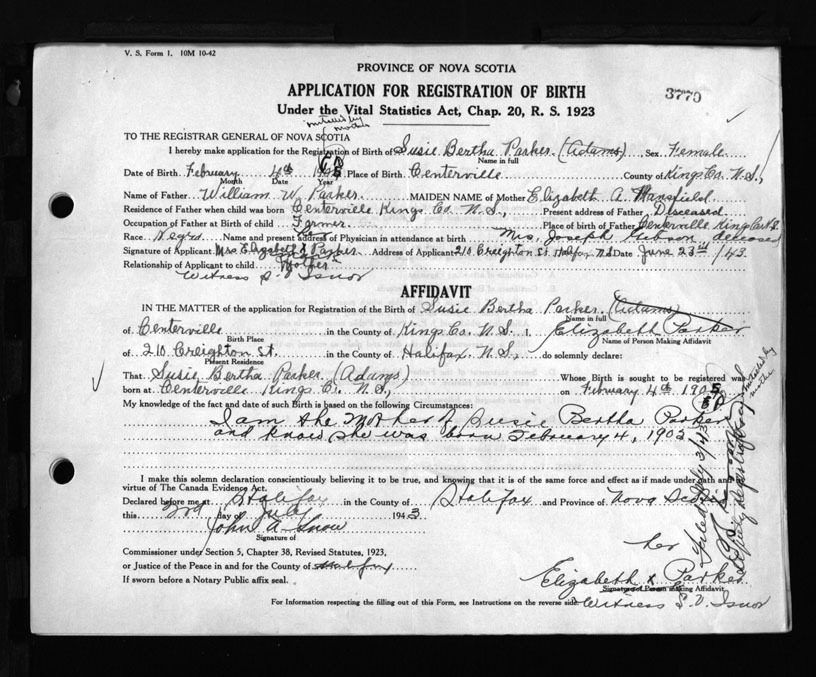 V. S. Form 1. 10M 10-42
PROVINCE OF NOVA SCOTIA
APPLICATION FOR REGISTRATION OF BIRTH
3770
Under the Vital Statistics Act, Chap. 20, R. S. 1923
initialed by mother
TO THE REGISTRAR GENERAL OF NOVA SCOTIA
I hereby make application for the Registration of Birth of Susie Bertha Parker (Adams) Sex Female
Name in full
Date of Birth February 4th 1905 Place of Birth Centerville County of Kings Co. N.S.,
Month Date Year
Name of Father William W. Parker MAIDEN NAME of Mother Elizabeth A. Mansfield
Residence of Father when child was born Centerville Kings Co. N.S., Present address of Father Disceased
Occupation of Father at Birth of child Farmer Place of birth of Father Centerville Kings Co. N.S.
Race Negro Name and present address of Physician in attendance at birth Mrs. Joseph Gibson deceased
Signature of Applicant Mrs Elizabeth x Parker Address of Applicant 210 Creighton St. Halifax N.S. Date June 23rd /43
Relationship of Applicant to child Mother
Witness S. V. Isnor
AFFIDAVIT
IN THE MATTER of the application for Registration of the Birth of Susie Bertha Parker (Adams)
Name in full
of Centerville in the County of Kings Co. N.S. I, Elizabeth Parker
Birth Place Name of Person Making Affidavit
of 210 Creighton St. in the County of Halifax N.S., do solemnly declare:
Present Residence
That Susie Bertha Parker (Adams) Whose Birth is sought to be registered was
born at Centerville Kings Co. N.S., on February 4th 1905
E P
initialed by mother
My knowledge of the fact and date of such Birth is based on the following Circumstances:
I am the Mother of Susie Bertha Parker
and know she was born February 4, 1905
I make this solemn declaration conscientiously believing it to be true, and knowing that it is of the same force and effect as if made under oath and
virtue of The Canada Evidence Act.
Declared before me at Halifax in the County of Halifax and Province of Nova Scotia
this 3rd day of July 1943
John A. Snow
Signature of
her
Commissioner under Section 5, Chapter 38, Revised Statutes, 1923,
or Justice of the Peace in and for the County of Halifax
Elizabeth x Parker
Signature of Person making Affidavit
If sworn before a Notary Public affix seal.
For Information respecting the filling out of this Form, see Instructions on the reverse side.
Witness S. V. Isnor
Filed July 3/43
Deputy Registrar